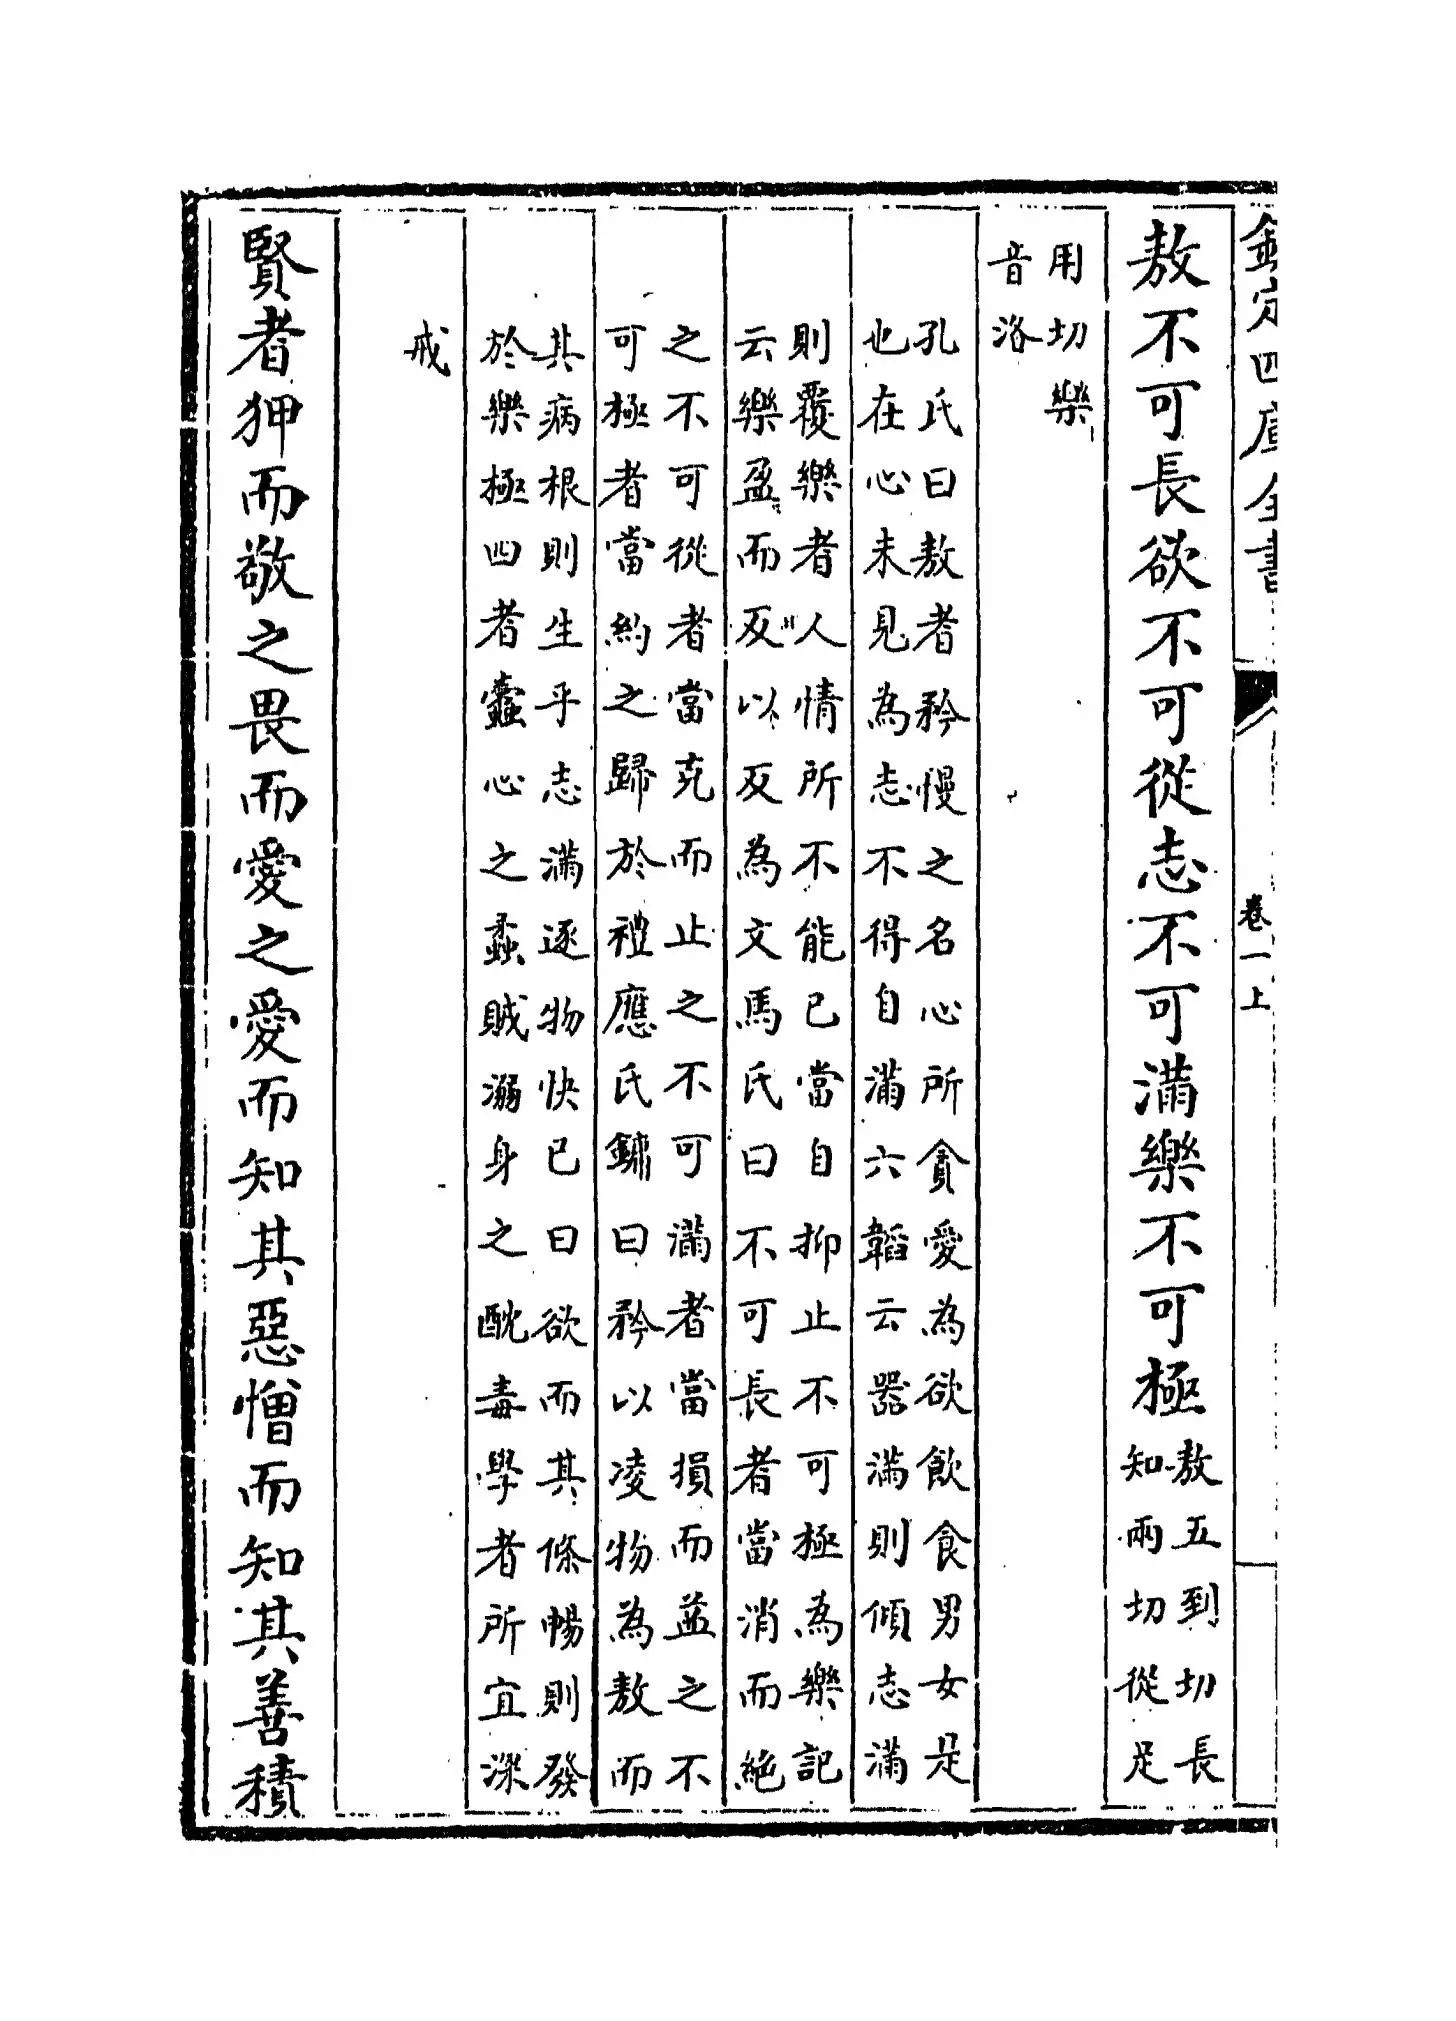 欽定四庫全書
卷一上
敖不可長欲不可從志不可滿樂不可極
敖五到切長
知兩切從足
用切樂
音洛
孔氏曰敖者矜慢之名心所貪愛為欲飲食男女是
也在心未見為志不得自滿六韜云器滿則傾志滿
則覆樂者人情所不能已當自抑止不可極為樂記
云樂盈而反以反為文馬氏曰不可長者當消而絶
之不可從者當克而止之不可滿者當損而益之不
可極者當約之歸於禮應氏鏞曰矜以凌物為敖而
其病根則生乎志滿逐物快已曰欲而其條暢則發
於樂極四者蠹心之蟊賊溺身之酖毒學者所宜深
戒
賢者狎而敬之畏而愛之愛而知其惡憎而知其善積